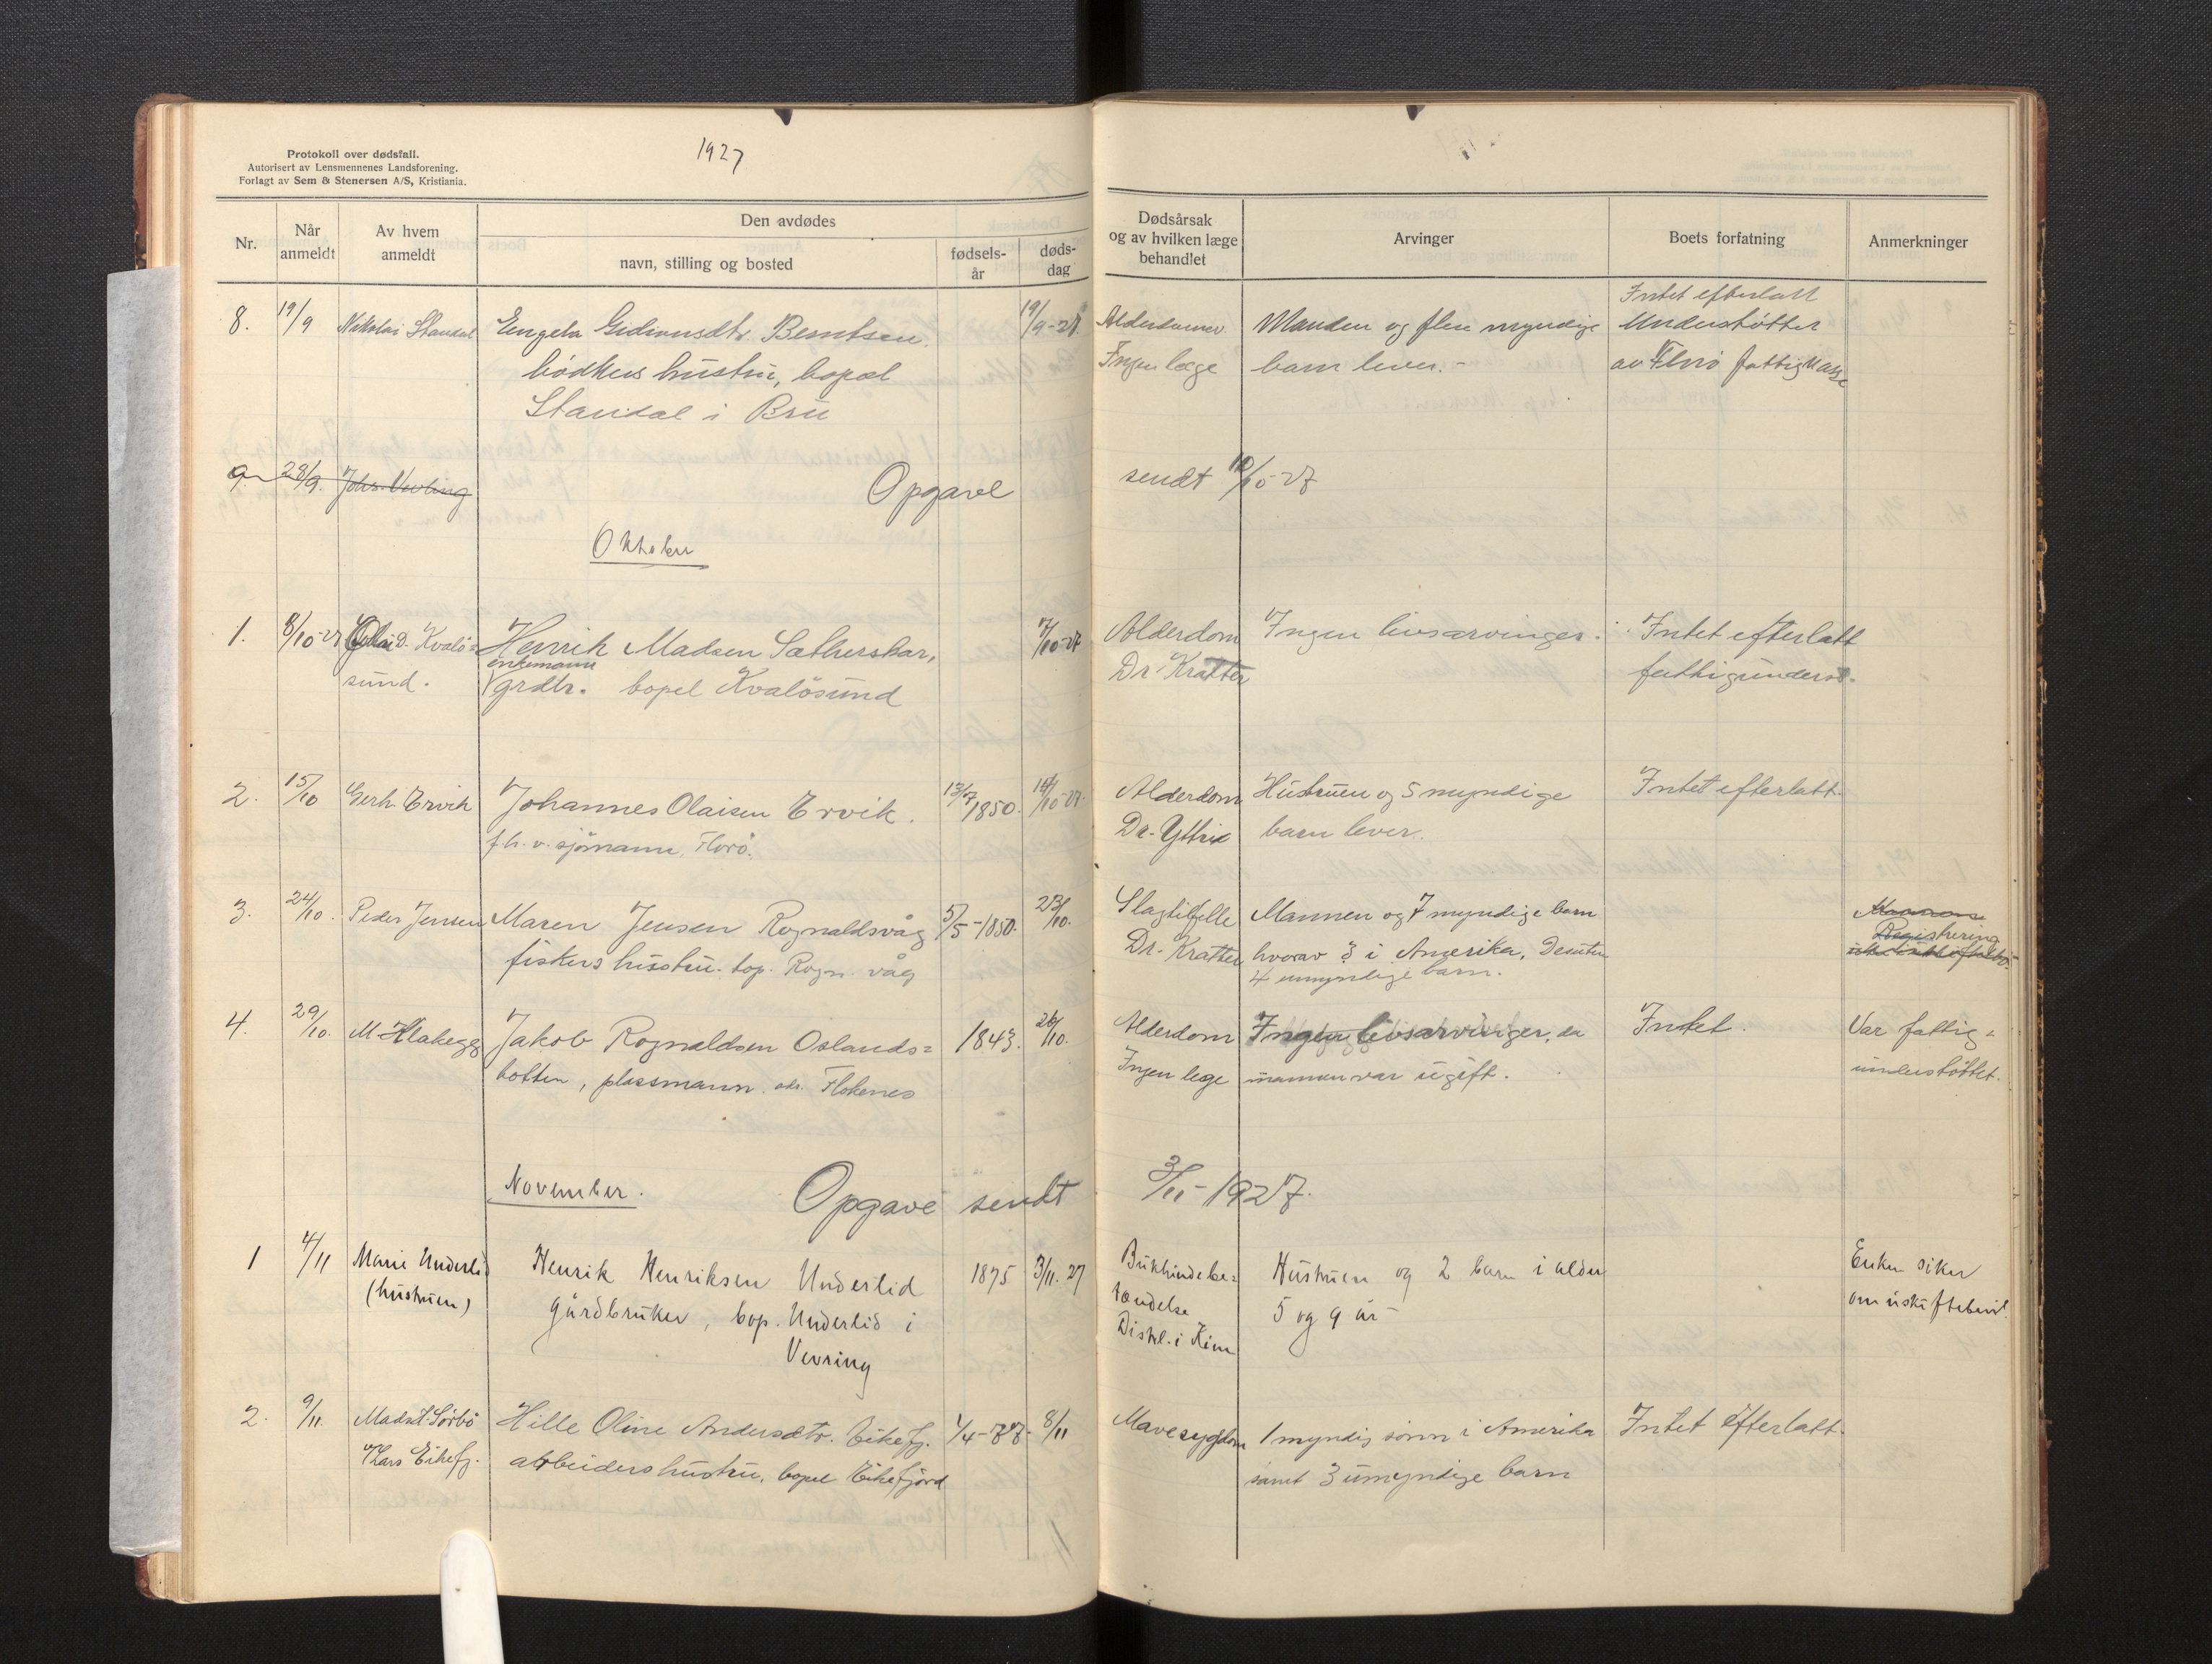 1927
Protokoll over dødsfall.
Autorisert av Lensmennenes Landsforening.
Forlagt av Sem & Stenersen A/S, Kristiania.
Nr.
Når anmeldt
Av hvem anmeldt
Den avdødes
navn, stilling og bosted
fødselsår
dødsdag
Dødsårsak og av hvilken læge behandlet
Arvinger
Boets forfatning
Anmerkninger
8. 19/9 Nikolai Standal Engela Gidionsdtr. Berntsen. 19/9-27. Alderdomsv. Manden og flere myndige Intet efterlatt
bødkers hustru, bopæl Ingen læge barn lever. - Understøttet
Standal i Bru av Florø fattigkasse
9. 28/9. Johs. Vevling Opgave sendt 10/10-27
Oktober
1. 8/10-27 Ola D. Kvalö= Henrik Madsen Sætherskar, 7/10-27 Alderdom Ingen livsarvinger. Intet efterlatt
sund. enkemann grdbr. bopel Kvalösund Dr. Kratter fattigunderst.
2. 15/10 Gerh. Ervik Johannes Olaisen Ervik. 13/7 1850. 14/10-27. Alderdom Hustruen og 5 myndige Intet efterlatt.
f.h.v. sjömann, Florö. Dr. Yttrie barn lever.
3. 24/10. Peder Jensen Maren Jensen Rognaldsvåg 5/5-1850. 23/10. Slagtilfelle Mannen og 7 myndige barn
fiskers hustru. bop. Rogn.våg Dr. Kratter hvorav 3 i Amerika. Desuten
4 umyndige barn.
Registrering
4. 29/10. M. Klakegg Jakob Rognaldsen Oslands= 1843. 26/10. Alderdom Ingen livsarvinger, da Intet. Var fattig=
botten, plassmann. adr. Flokenes Ingen lege mannen var ugift. understöttet.
November. Opgave sendt 3/11-1927.
1 4/11 Marie Underlid Henrik Henriksen Underlid 1875 3/11.27 Bukhindebe= Hustruen og 2 barn i alder Enken söker
(hustruen) gårdbruker, bop. Underlid i tændelse 5 og 9 år - om uskiftebevil.
Vevring Distrl. i Kinn
2. 9/11. Mads T. Sörbö Hille Oline Andersdtr. Eikefj. 1/4-77- 8/11 Mavesygdom 1 myndig sönn i Amerika Intet efterlatt.
Lars Eikefj. arbeiders hustru, bopel Eikefjord samt 3 umyndige barn